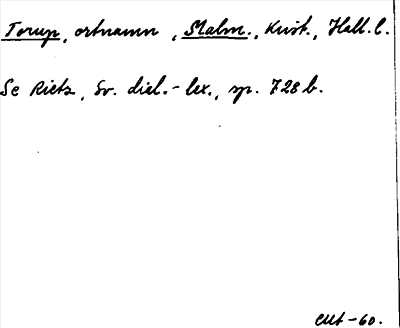 Torup, ortnamn, Malm., Krist., Hall. l.
Se Rietz, Sv. dial.-lex., sp. 728 b.
-60.